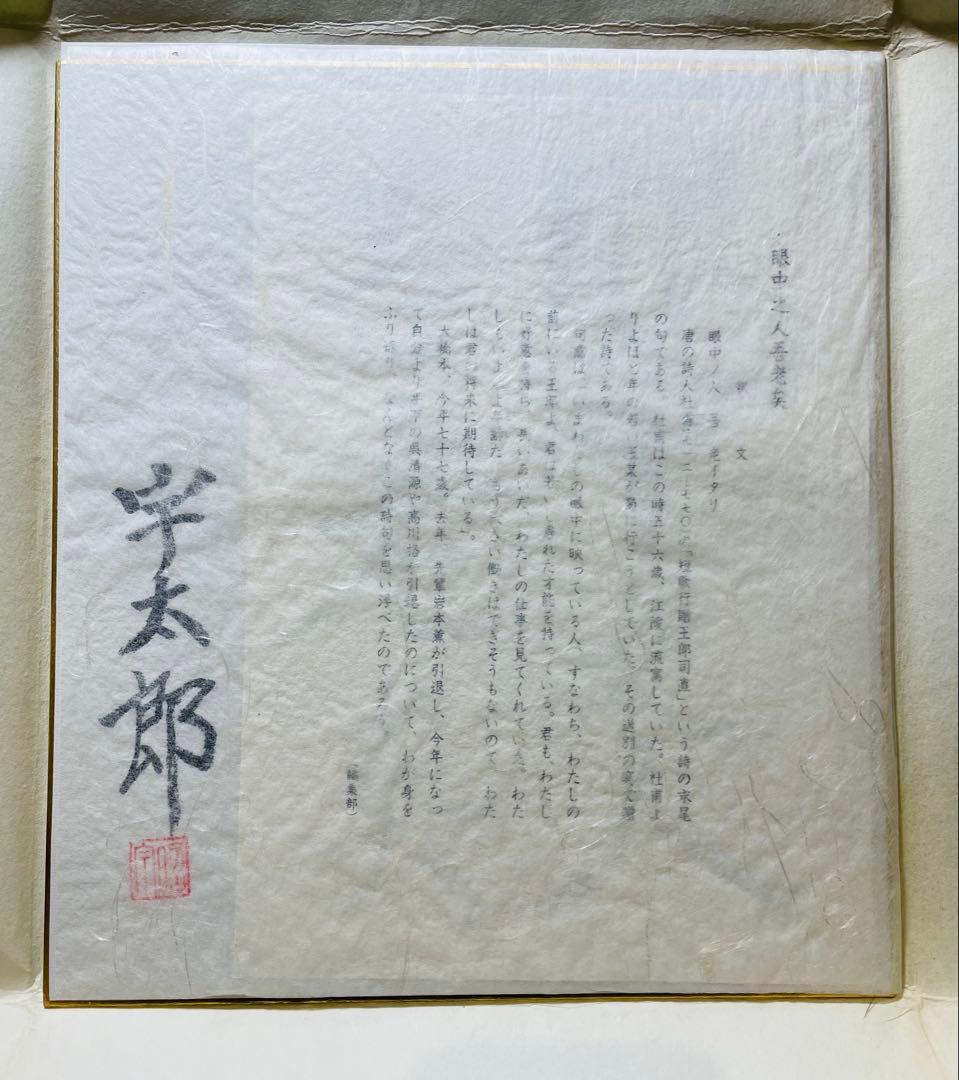 眼中之人吾老矣
釈文
眼中ノ人 吾 老イタリ
唐の詩人杜甫(七一二-七七〇)の「短歌行贈王郎司直」という詩の末尾
の句である。杜甫はこの時五十六歳、江陵に流寓していた。杜甫よ
りよほど年の若い王某が蜀に行こうとしていた。その送別の宴で贈
った詩である。
句意は「いまわたしの眼中に映っている人、すなわち、わたしの
前にいる王君よ、君は若いし優れた才能を持っている。君も、わたし
に好意を持ち、長いあいだ、わたしの仕事を見てくれていた。わた
しもいよいよ年老いた。もう大きい働きはできそうもないので、わた
しは君の将来に期待している」。
大橋本、今年七十七歳。去年、先輩岩本薫が引退し、今年になっ
て自分より年下の呉清源や高川格が引退したのについて、わが身を
ふり返り、なんとなくこの詩句を思い浮べたのであろう。
(編集部)
宇太郎